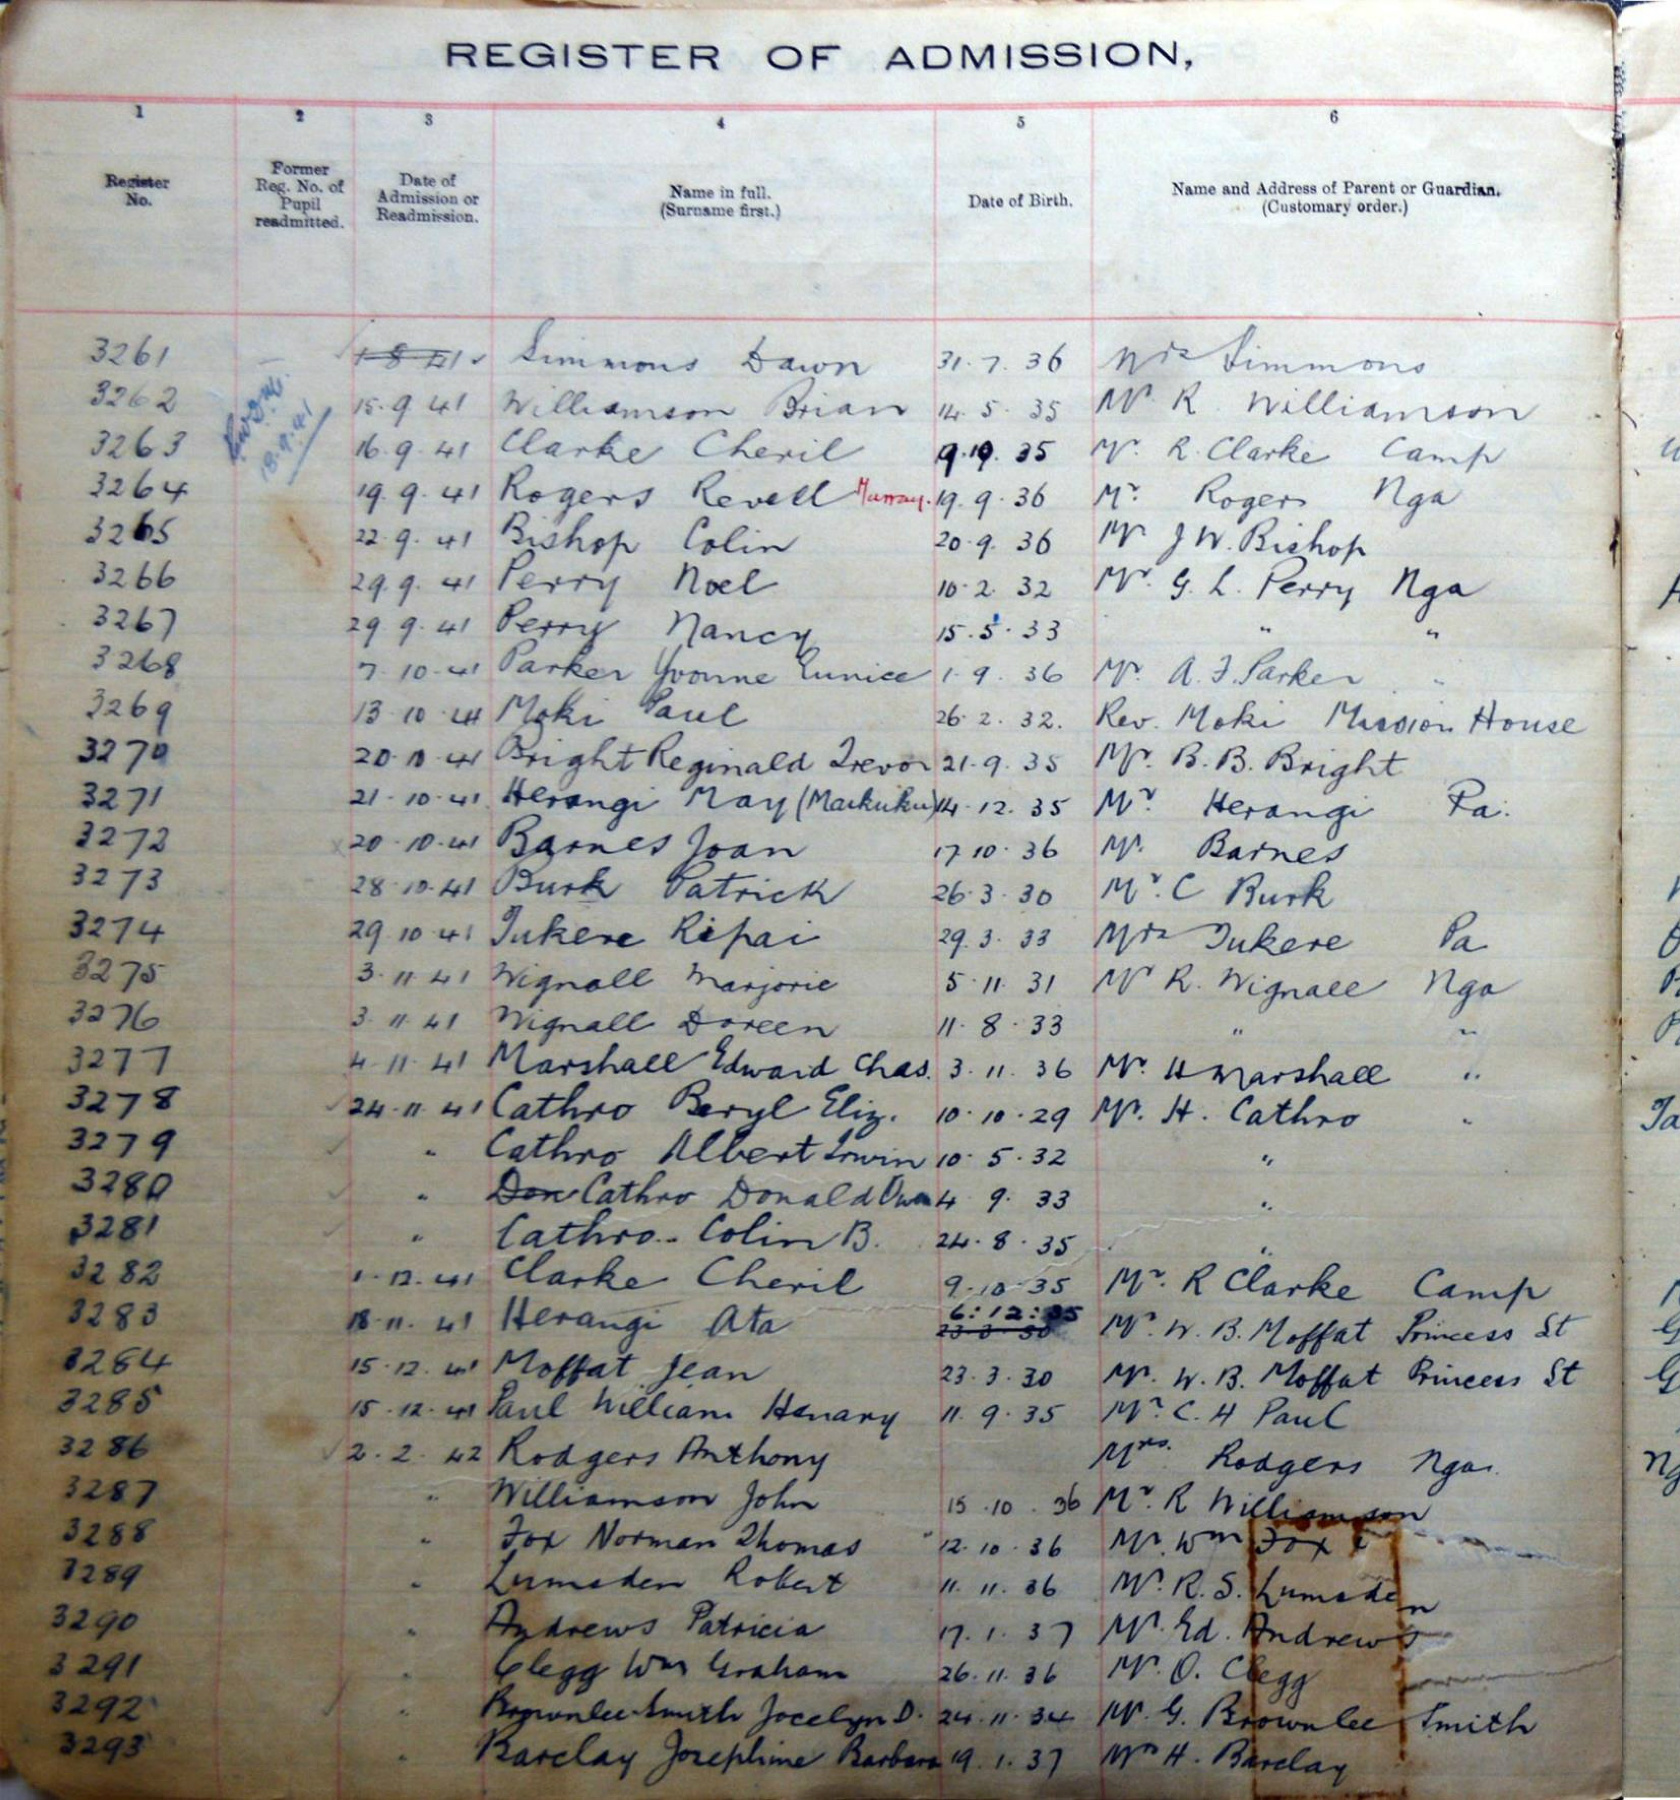 REGISTER OF ADMISSION,
1 2 3 4 5 6
Register No. Former Reg. No. of Pupil readmitted. Date of Admission or Readmission. Name in full. (Surname first.) Date of Birth. Name and Address of Parent or Guardian. (Customary order.)
3261 1 8 41 Simmons Dawn 31. 7. 36 Mrs Simmons
3262 15. 9 41 Williamson Brian 14. 5. 35 Mr R Williamson
18.9.41
3263 16. 9. 41 Clarke Cheril 9.10. 35 Mr. R. Clarke Camp
3264 19. 9. 41 Rogers Revell Murray. 19. 9. 36 Mr. Rogers Nga
3265 22. 9. 41 Bishop Colin 20. 9. 36 Mr J W. Bishop
3266 29. 9. 41 Perry Noel 10. 2. 32 Mr. G. L. Perry Nga
3267 29 9. 41 Perry Nancy 15. 5. 33 " "
3268 7. 10. 41 Parker Yvonne Eunice 1. 9. 36 Mr. A. F. Parker "
3269 13. 10. 41 Moki Paul 26. 2. 32. Rev. Moki Mission House
3270 20. 10. 41 Bright Reginald Trevor 21. 9. 35 Mr. B. B. Bright
3271 21. 10. 41 Herangi May (Maikuku) 14. 12. 35 Mr Herangi Pa.
3272 20. 10. 41 Barnes Joan 17 10. 36 Mr. Barnes
3273 28. 10. 41 Burk Patrick 26. 3. 30 Mr. C Burk
3274 29. 10. 41 Tukere Ripai 29. 3. 33 Mrs Tukere Pa
3275 3. 11. 41 Wignall Marjorie 5. 11. 31 Mr R. Wignall Nga
3276 3. 11. 41 Wignall Doreen 11. 8. 33 " "
3277 4. 11. 41 Marshall Edward Chas. 3. 11. 36 Mr. H Marshall "
3278 24. 11. 41 Cathro Beryl Eliz. 10. 10. 29 Mr. H. Cathro "
3279 " Cathro Albert Irwin 10. 5. 32 "
3280 " Don Cathro Donald Owen 4 9. 33 "
3281 " Cathro. Colin B. 24. 8. 35 "
3282 1. 12. 41 Clarke Cheril 9. 10. 35 Mr. R Clarke Camp
3283 18. 11. 41 Herangi Ata 6: 12: 35 23 3 30 Mr. W. B. Moffat Princess St
3284 15. 12. 41 Moffat Jean 23. 3. 30 Mr. W. B. Moffat Princess St
3285 15. 12. 41 Paul William Henary 11. 9. 35 Mr. C. H Paul
3286 2. 2. 42 Rodgers Anthony Mrs. Rodgers Nga.
3287 " Williamson John 15. 10. 36 Mr. R Williamson
3288 " Fox Norman Thomas 12. 10. 36 Mr. Wm Fox
3289 " Lumsden Robert 11. 11. 36 Mr. R. S. Lumsden
3290 " Andrews Patricia 17. 1. 37 Mr. Ed. Andrews
3291 " Clegg Wm Graham 26. 11. 36 Mr. O. Clegg
3292 " Brownlee-Smith Jocelyn D. 24. 11. 34 Mr. G. Brownlee Smith
3293 " Barclay Josephine Barbara 19. 1. 37 Mr H. Barclay